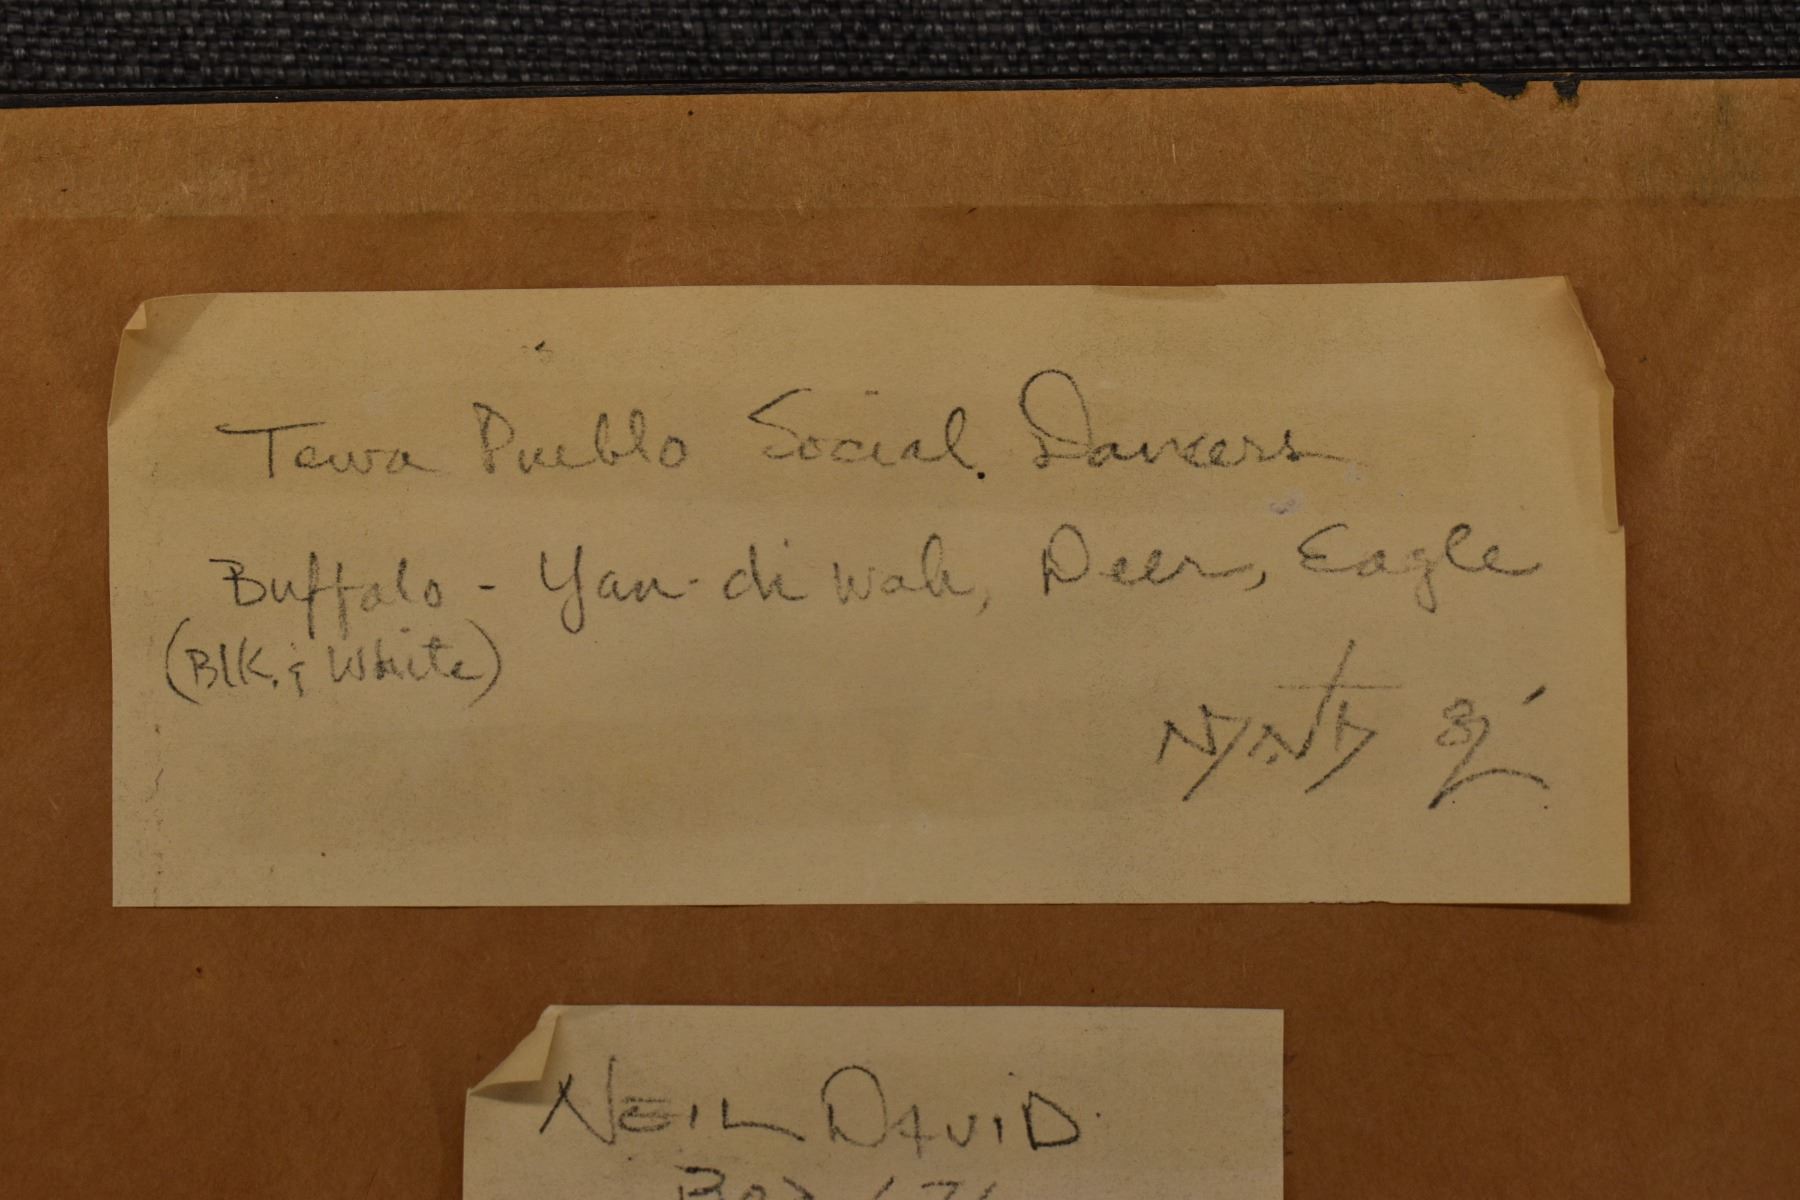 Tewa Pueblo Social Dancers
Buffalo - Yan-di wah, Deer, Eagle
(Blk. & White)
NEIL DAVID
BOX